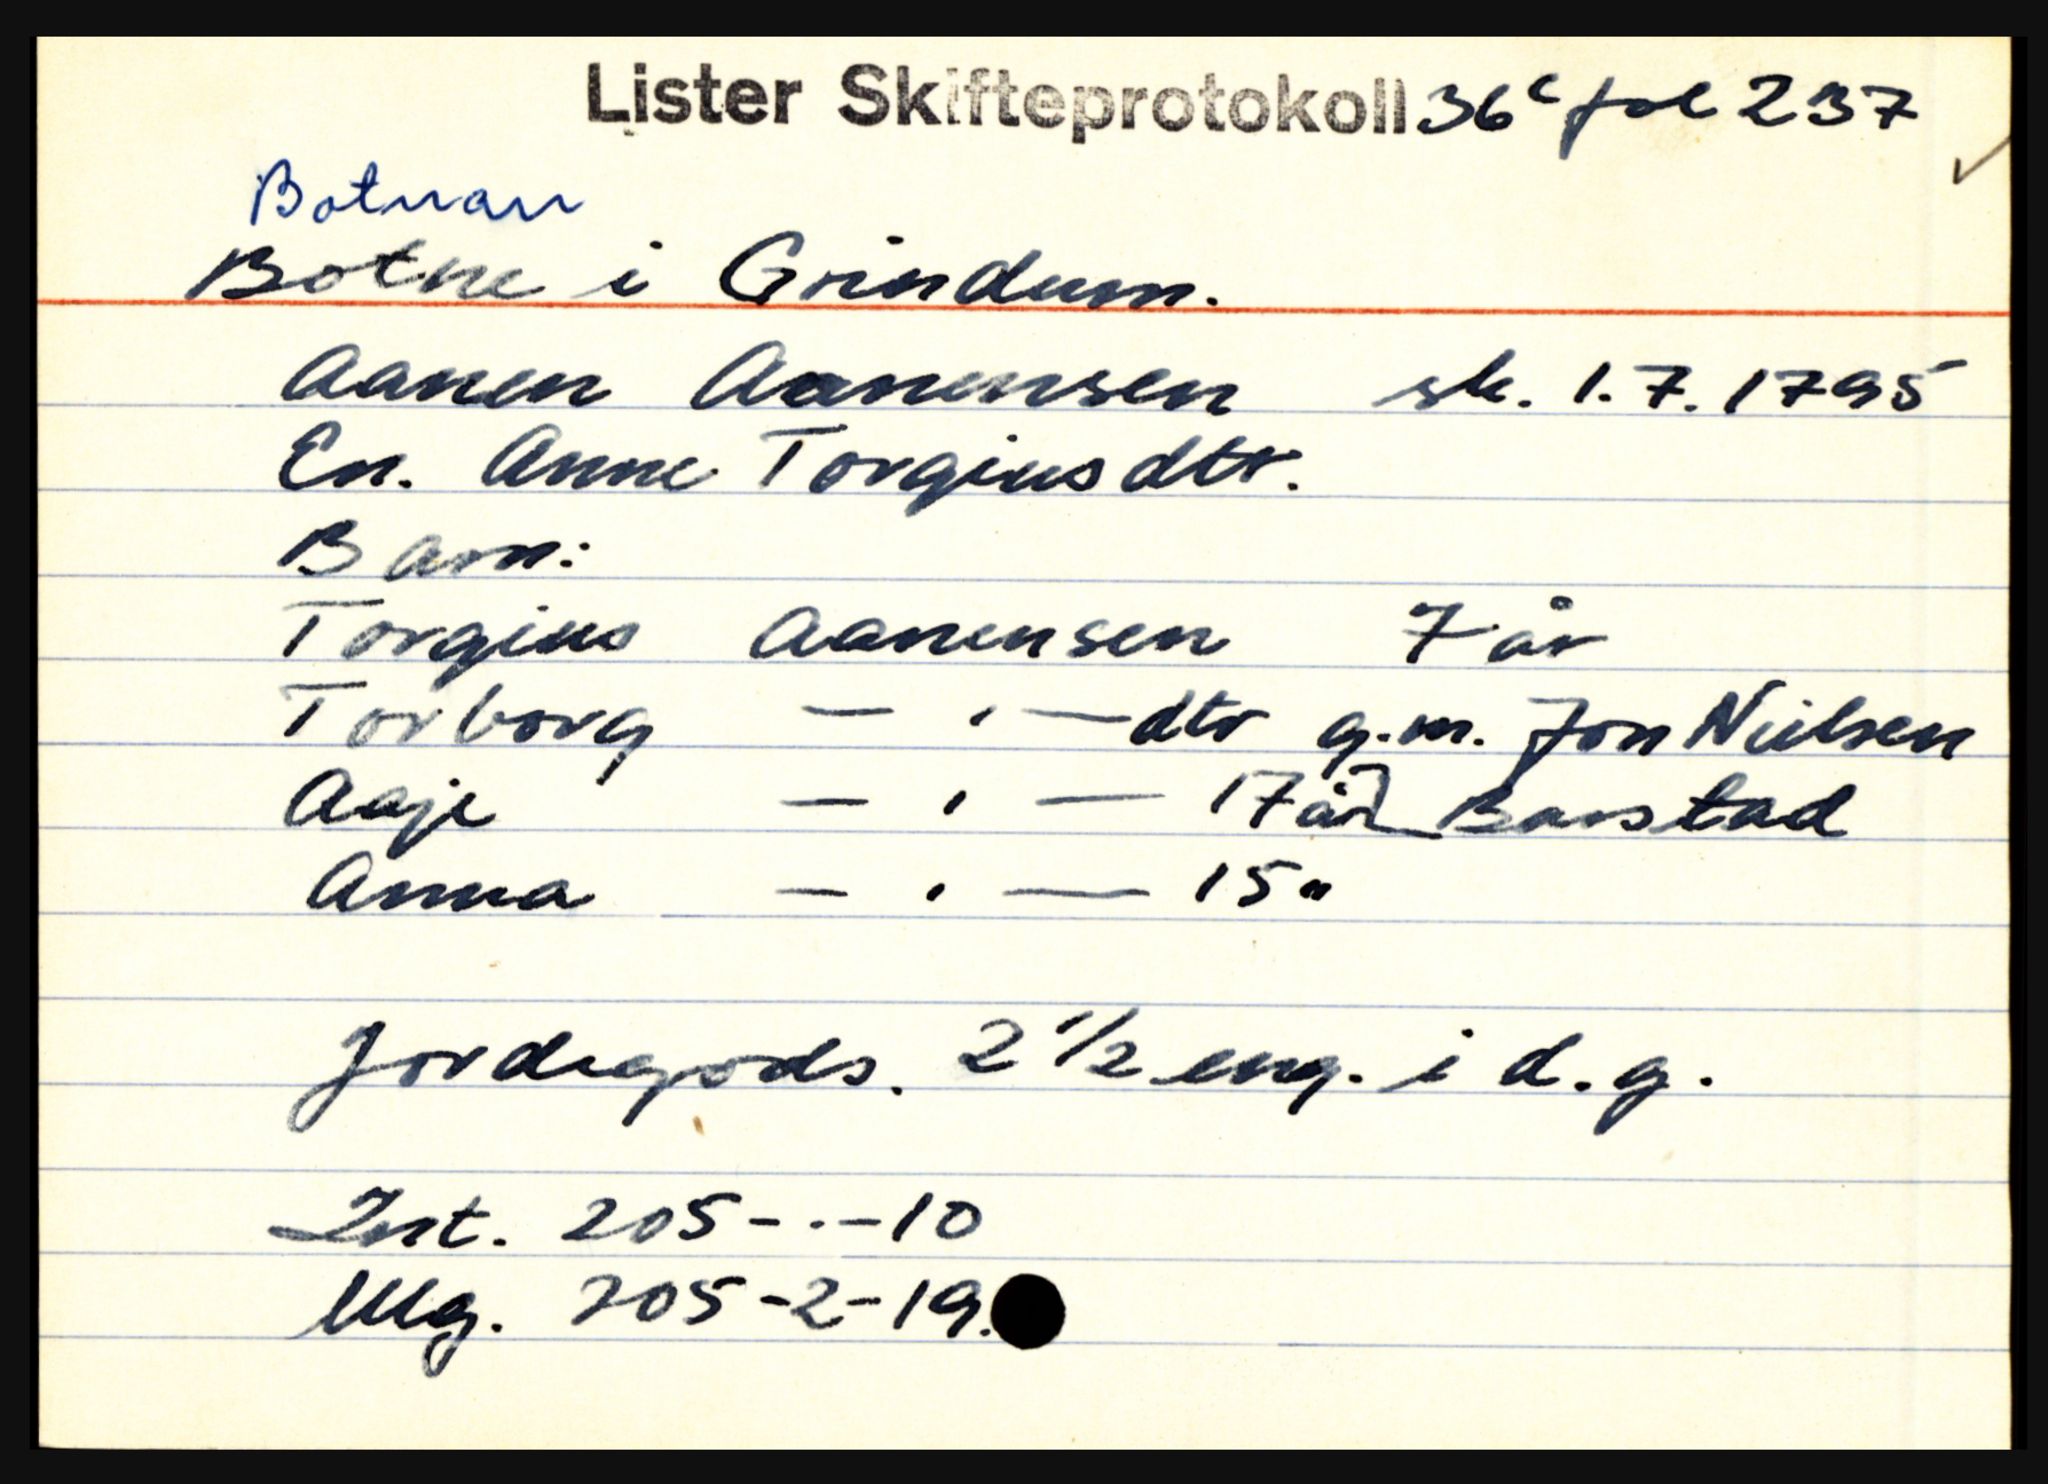 Lister Skifteprotokoll 36c fol 237
Botnan
Botne i Grindum.
Aanen Aanensen sk. 1.7.1795
En. Anne Torgiusdtr.
Barn:
Torgius Aanensen 7 år
Torborg — , — dtr g.m. Jon Nielsen
Aaje — , — 17 år Barstad
Anna — , — 15 "
Jordegods. 2 1/2 eng. i d.g.
Int. 205 - . - 10
Ulg. 205 - 2 - 19.